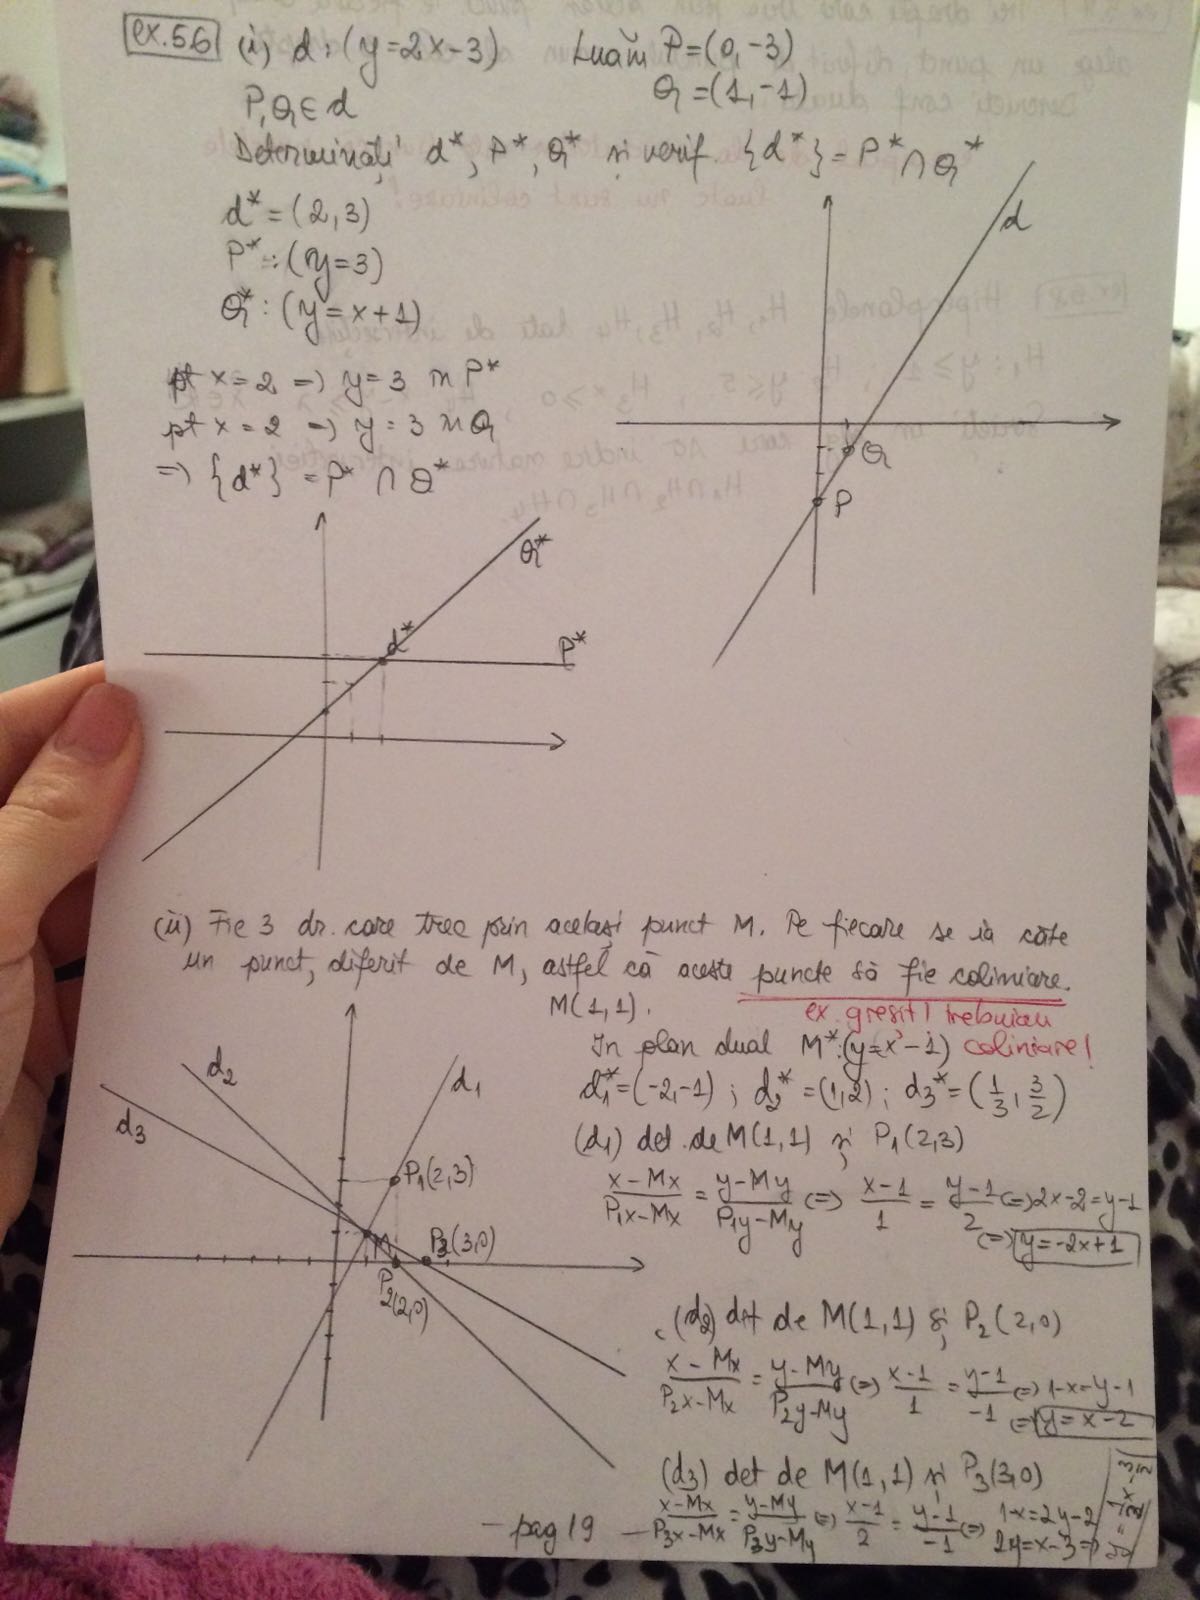 ex.5.6 (i) d: (y=2x-3) Luăm P=(0,-3)
P,Q∈d Q=(1,-1)
Determinați d*, P*, Q* și verif. {d*} = P* ∩ Q*
d* = (2,3)
P* : (y=3)
Q* : (y=x+1)
pt x=2 => y=3 în P*
pt x=2 => y=3 în Q
=> {d*} = P* ∩ Q*
d
Q
P
Q*
d*
P*
(ii) Fie 3 dr. care trec prin același punct M. Pe fiecare se ia câte
un punct, diferit de M, astfel că aceste puncte să fie coliniare.
M(1,1).
ex. greșit! trebuiau
coliniare!
În plan dual M*:(y=x-1)
d1*=(-2,-1) ; d2*=(1,2) ; d3*=(1/3, 3/2)
(d1) det. de M(1,1) și P1(2,3)
(x-Mx)/(P1x-Mx) = (y-My)/(P1y-My) (=) (x-1)/1 = (y-1)/2 (=) 2x-2=y-1
(=) y=-2x+1
d2
d3
d1
P1(2,3)
M
P3(3,0)
P2(2,0)
(d2) det de M(1,1) și P2(2,0)
(x-Mx)/(P2x-Mx) = (y-My)/(P2y-My) (=) (x-1)/1 = (y-1)/-1 (=) 1-x=y-1
(=) y=x-2
(d3) det de M(1,1) și P3(3,0)
(x-Mx)/(P3x-Mx) = (y-My)/(P3y-My) (=) (x-1)/2 = (y-1)/-1 (=) 1-x=2y-2
2y=x-3 =>
y=1/2x-3/2
- pag 19 -